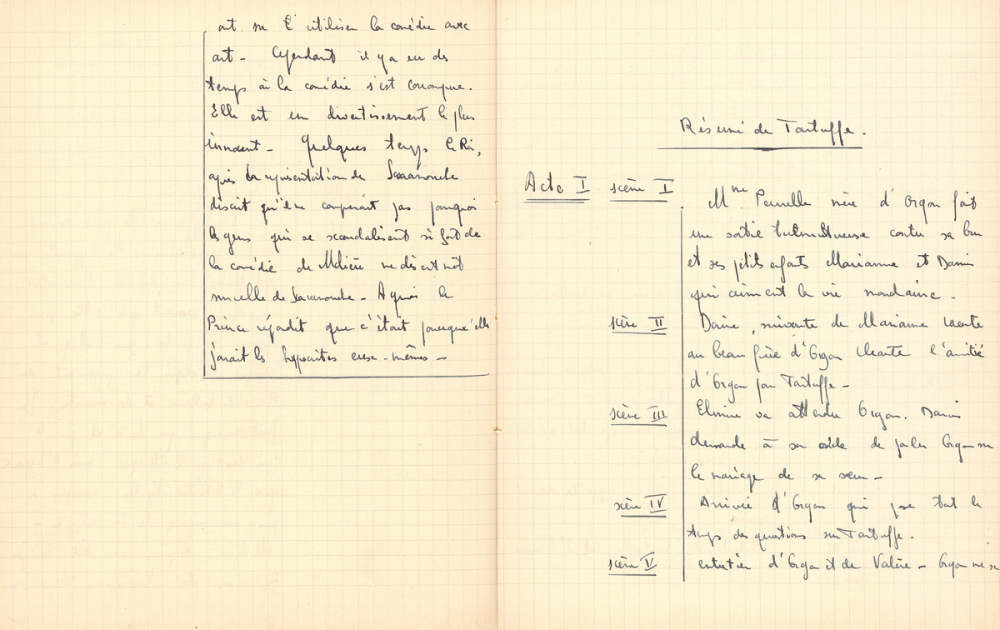 ont su l'utiliser la comédie avec
art - Cependant il y a eu des
temps où la comédie s'est corrompue.
Elle est un divertissement le plus
innocent - Quelques temps le Roi,
après la représentation de Scaramouche
disait qu'il ne comprenait pas pourquoi
les gens qui se scandalisent si fort de
la comédie de Molière ne disent mot
sur celle de Scaramouche - A quoi le
Prince répondit que c'était parce qu'elle
jouait les hypocrites eux-mêmes -
Résumé de Tartuffe.
Acte I scène I
Mme Pernelle mère d'Orgon fait
une sortie tumultueuse contre sa bru
et ses petits enfants Marianne et Damis
qui aiment la vie mondaine.
scène II Dorine, suivante de Marianne raconte
au beau frère d'Orgon Cléante l'amitié
d'Orgon pour Tartuffe -
scène III Elmire va attendre Orgon. Damis
demande à son oncle de parler Orgon sur
le mariage de sa sœur -
scène IV Arrivée d'Orgon qui pose tout le
temps des questions sur Tartuffe.
scène V entretien d'Orgon et de Valère - Orgon ne